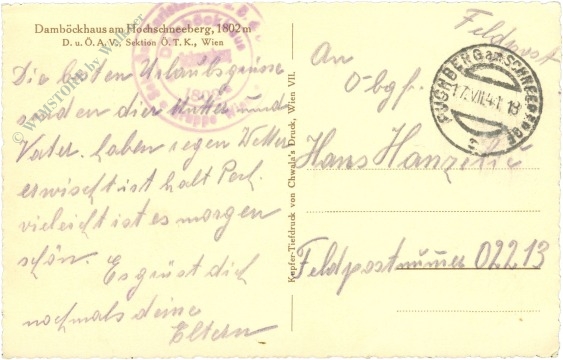 Damböckhaus am Hochschneeberg, 1802 m
D. u. Ö. A. V., Sektion Ö. T. K., Wien
Die besten Urlaubsgrüsse
senden dir Mutter und
Vater. haben regen Wetter
erwischt ist halt Pech.
vieleicht ist es morgen
schön. Es grüst dich
nochmals deine
Eltern
Kupfer-Tiefdruck von Chwala's Druck, Wien VII.
Feldpost
An
Obgf.
Hans
Feldpostnummer 02213
PUCHBERG am SCHNEEBERG
17.VII.41 18